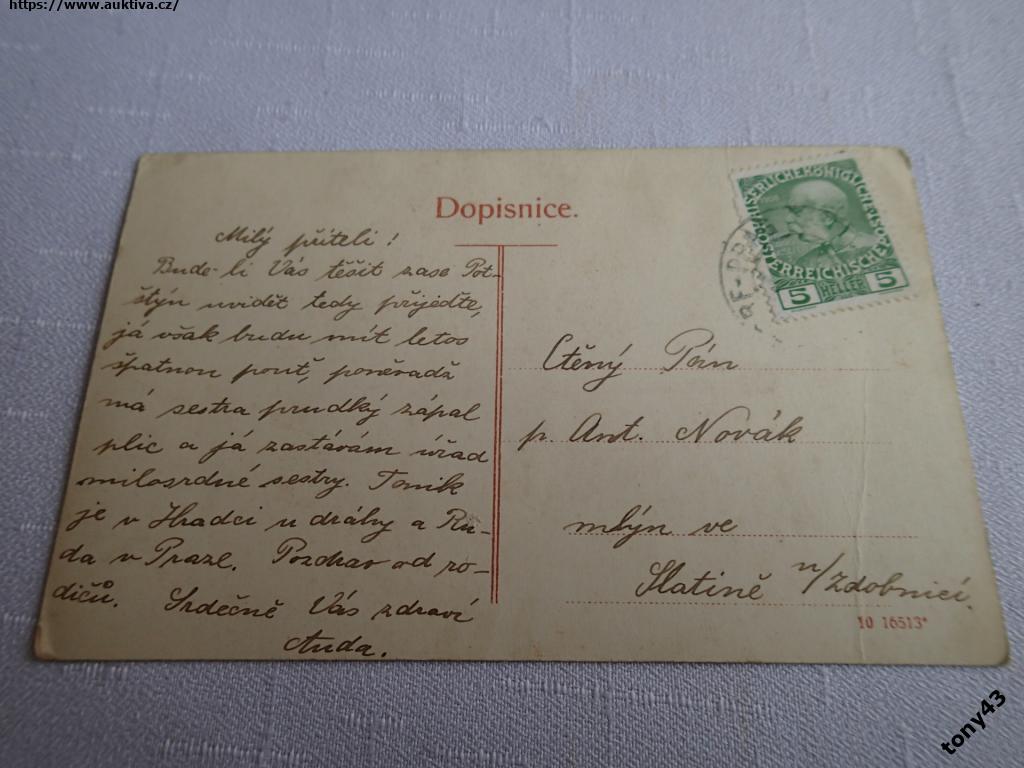 https://www.auktiva.cz/
Dopisnice.
KAISERLICHE KÖNIGLICHE
ÖSTERREICHISCHE
5 HELLER 5
Milý příteli!
Bude-li Vás těšit zase Pot-
štýn uvidět tedy přijeďte,
já však budu mít letos
špatnou pouť, poněvadž
má sestra prudký zápal
plic a já zastávám úřad
milosrdné sestry. Toník
je v Hradci u dráhy a Ru-
da v Praze. Pozdrav od ro-
dičů. Srdečně Vás zdraví
Anda.
Ctěný Pán
p. Ant. Novák
mlýn ve
Slatině n/Zdobnicí.
10 16513*
tony43